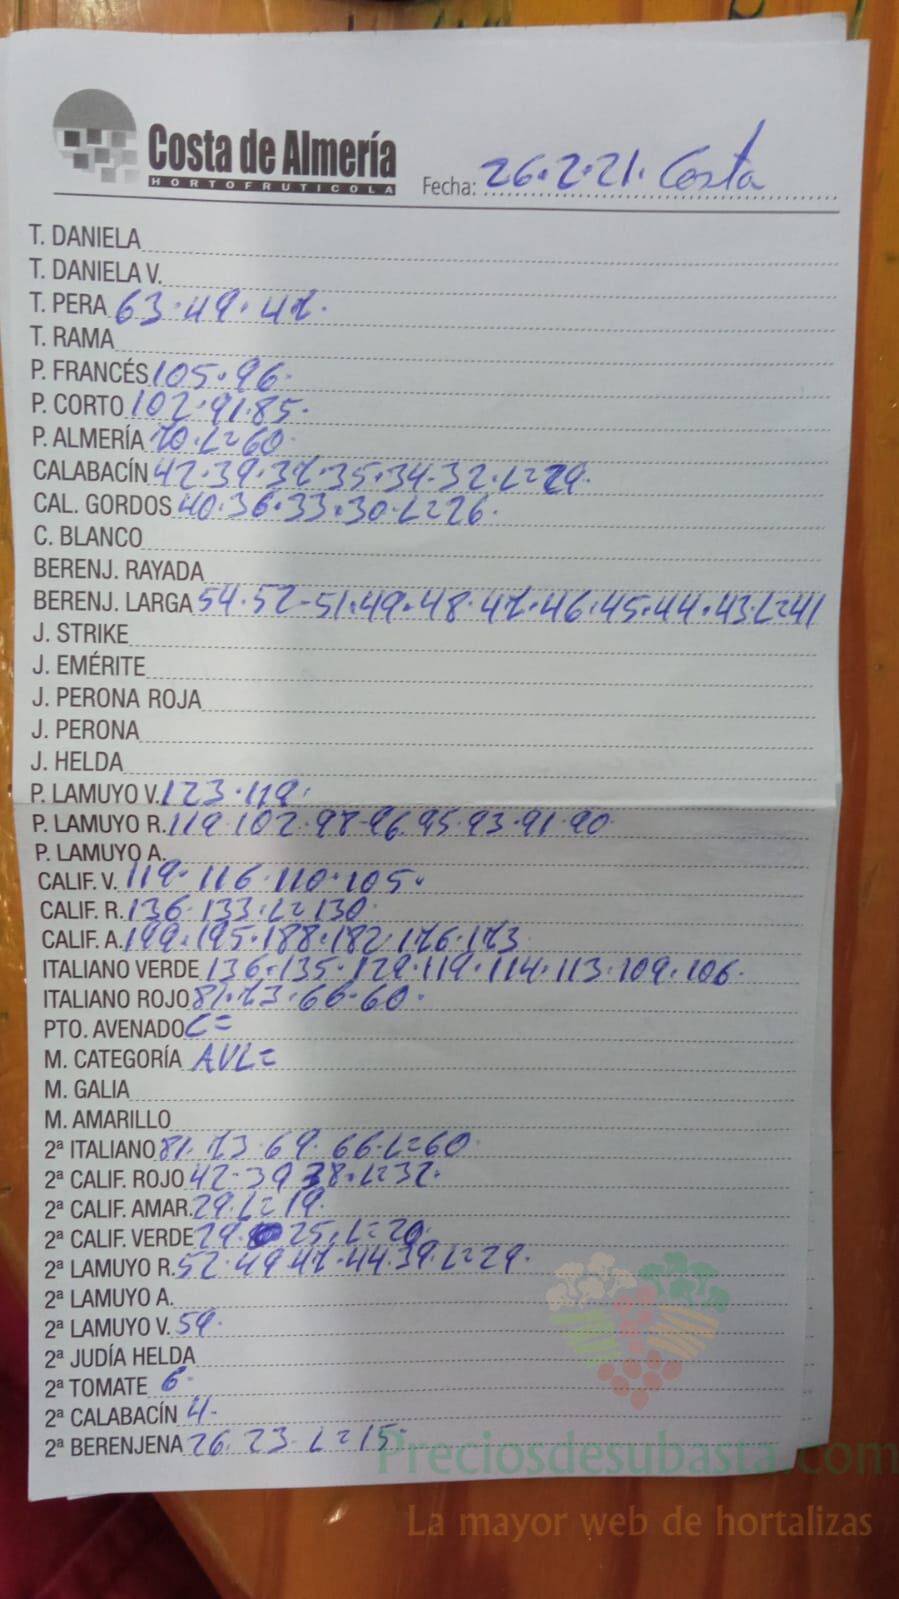 Costa de Almería
HORTOFRUTICOLA
Fecha: 26.2.21. Costa
T. DANIELA
T. DANIELA V.
T. PERA 63.49.47.
T. RAMA
P. FRANCÉS 105.96.
P. CORTO 102.91.85.
P. ALMERÍA 70.L=60.
CALABACÍN 42.39.37.35.34.32.L=29.
CAL. GORDOS 40.36.33.30.L=26.
C. BLANCO
BERENJ. RAYADA
BERENJ. LARGA 54.52-51.49.48.47.46.45.44.43.L=41
J. STRIKE
J. EMÉRITE
J. PERONA ROJA
J. PERONA
J. HELDA
P. LAMUYO V. 123.119.
P. LAMUYO R. 119.102.98.96.95.93.91.90.
P. LAMUYO A.
CALIF. V. 119.116.110.105.
CALIF. R. 136.133.L=130.
CALIF. A. 199.195.188.182.176.173
ITALIANO VERDE 136.135.129.119.114.113.109.106.
ITALIANO ROJO 81.73.66.60.
PTO. AVENADO C=
M. CATEGORÍA AVL=
M. GALIA
M. AMARILLO
2ª ITALIANO 81.73.69.66.L=60.
2ª CALIF. ROJO 42.39 38.L=32.
2ª CALIF. AMAR. 29.L=19.
2ª CALIF. VERDE 29. 25.L=20.
2ª LAMUYO R. 52.49.47.44.39.L=29.
2ª LAMUYO A.
2ª LAMUYO V. 59.
2ª JUDÍA HELDA
2ª TOMATE 6.
2ª CALABACÍN 4.
2ª BERENJENA 26.23.L=15.
Preciosdesubasta.com
La mayor web de hortalizas